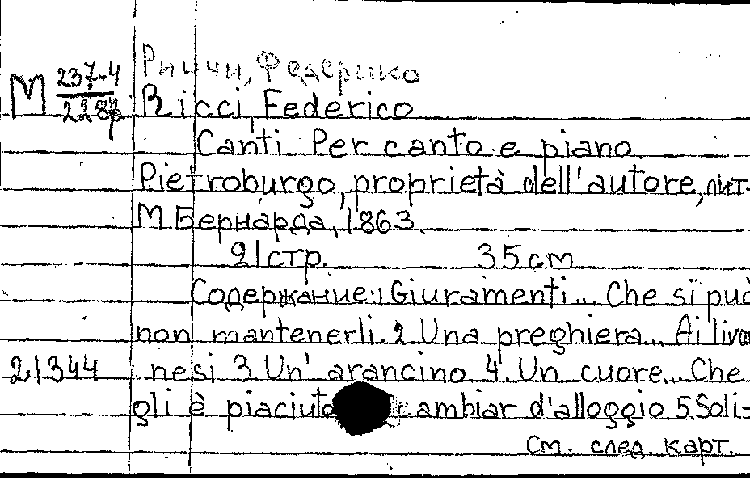 Риччи, Федерико
М 237-4
228
Ricci, Federico
Canti. Per canto e piano
Pietroburgo, proprietà dell'autore, лит.
М. Бернарда, 1863.
21 стр. 35 см
Содержание: 1 Giuramenti... Che si può
non mantenerli. 2 Una preghiera... Ai livor-
21344
nesi 3. Un' arancino 4. Un cuore... Che
gli è piaciuto cambiar d'alloggio 5. Soli-
См. след. карт.